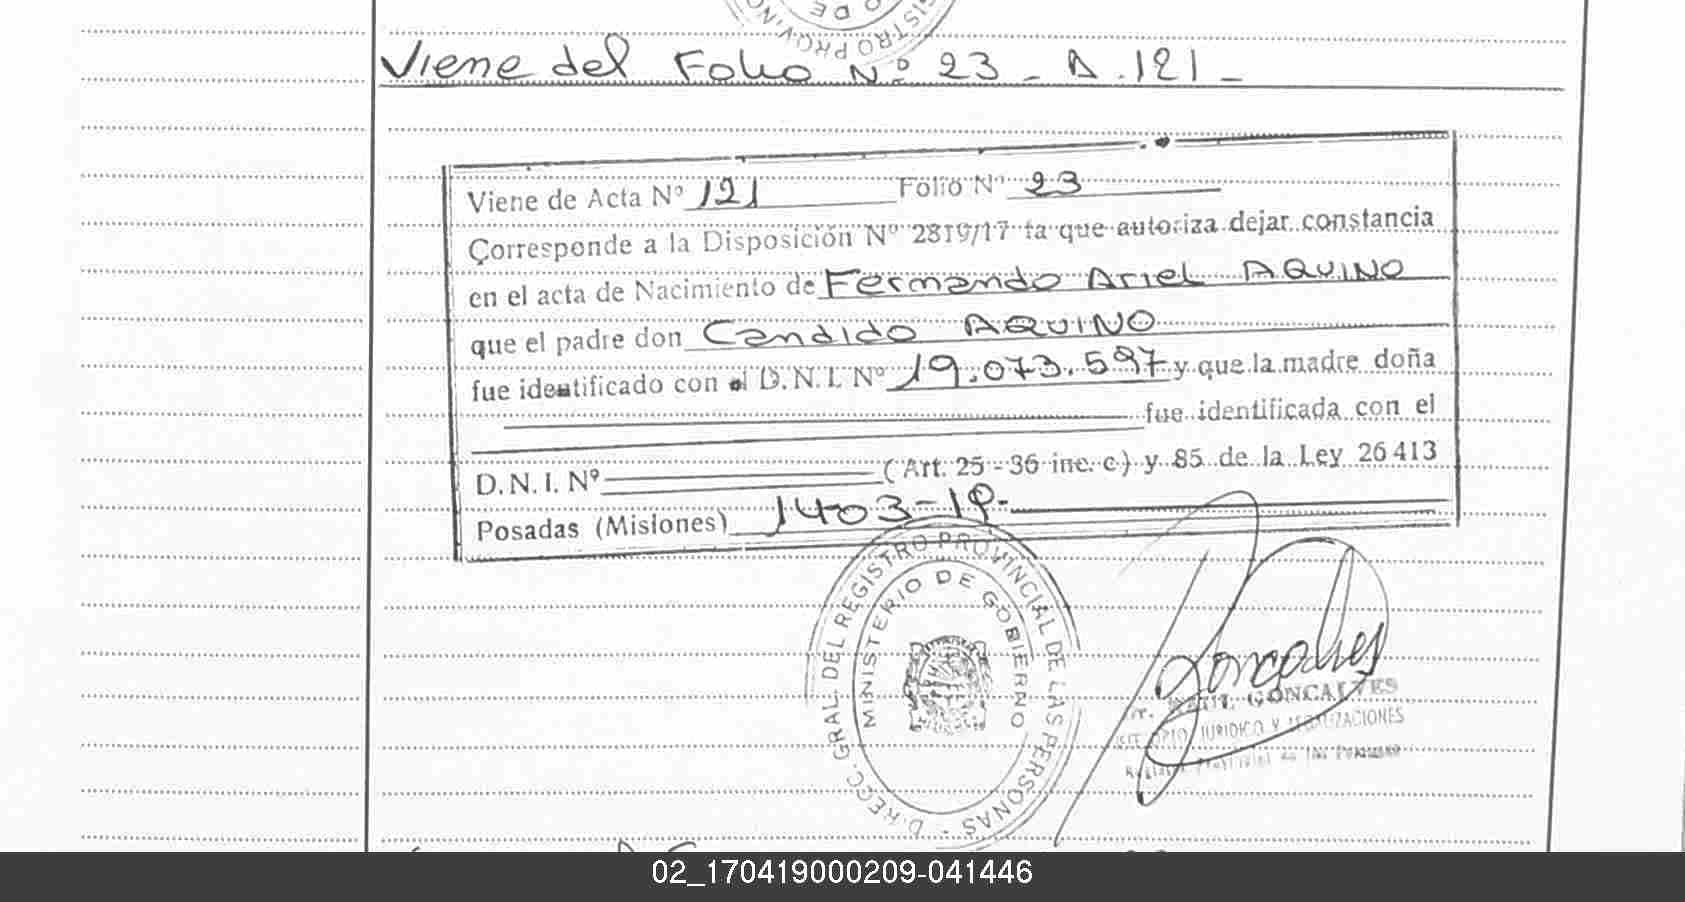 Viene del Folio Nº 23 - A. 121 -
Viene de Acta Nº 121 Folio Nº 23
Corresponde a la Disposición Nº 2819/17 la que autoriza dejar constancia
en el acta de Nacimiento de Fernando Ariel AQUINO
que el padre don Candido AQUINO
fue identificado con el D.N.I. Nº 19.073.597 y que la madre doña
fue identificada con el
D.N.I. Nº (Art. 25 - 36 inc. c) y 85 de la Ley 26413
Posadas (Misiones) 1403-19-
DIRECC. GRAL. DEL REGISTRO PROVINCIAL DE LAS PERSONAS
MINISTERIO DE GOBIERNO
GONCALVES
JURIDICO Y LEGALIZACIONES
Provincial de las Personas
02_170419000209-041446